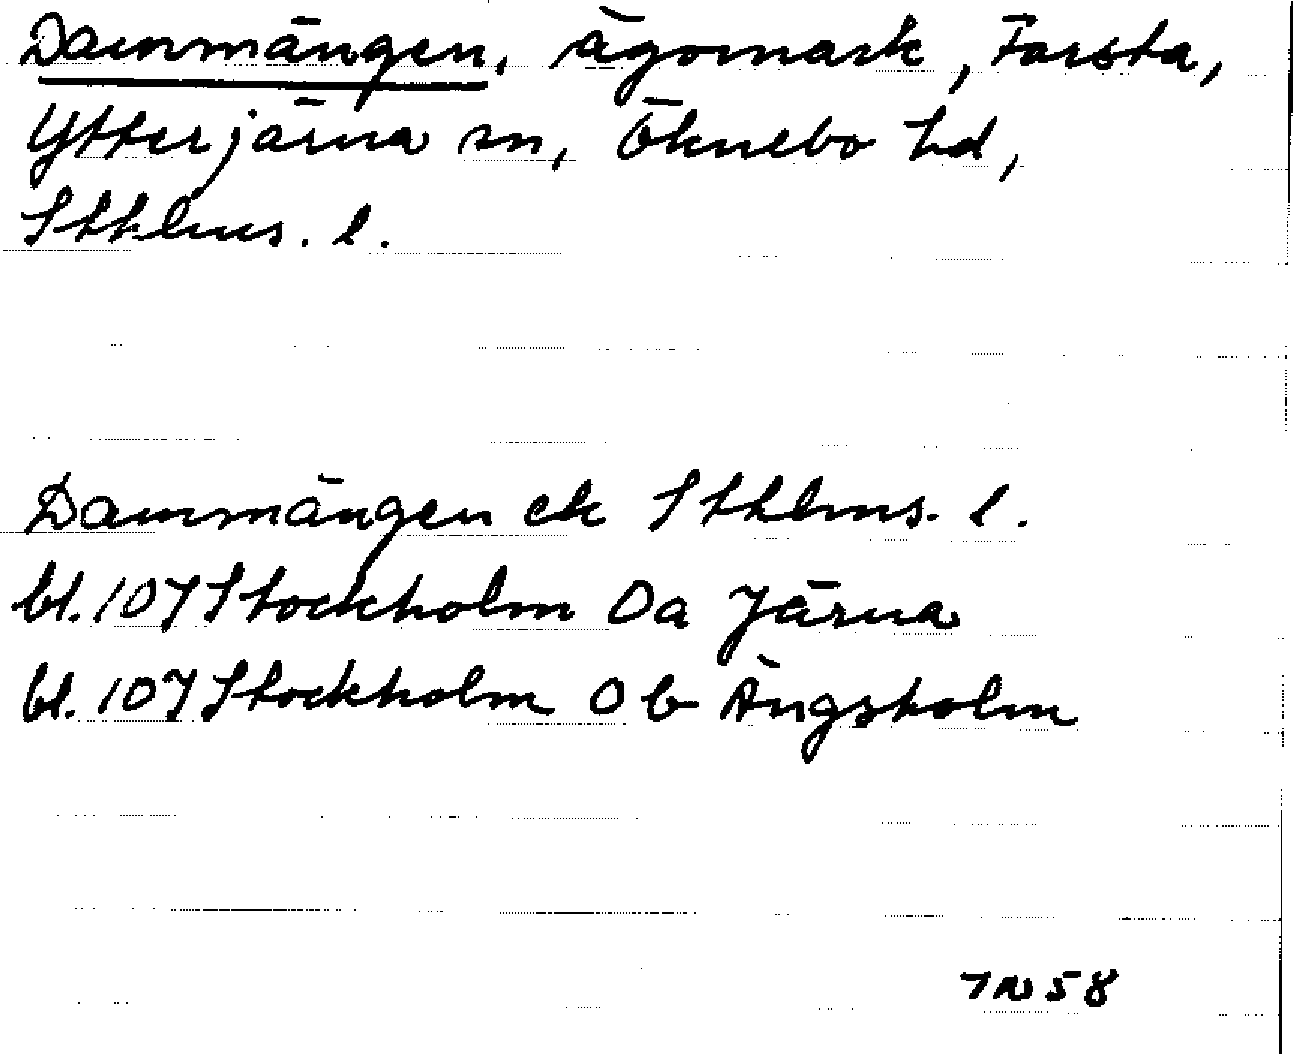 Dammängen, ägomark, Farsta,
Ytterjärna sn, Öknebo hd,
Sthlms. l.
Dammängen ek Sthlms. l.
bl. 107 Stockholm 0a Järna
bl. 107 Stockholm 0b Ängsholm
58